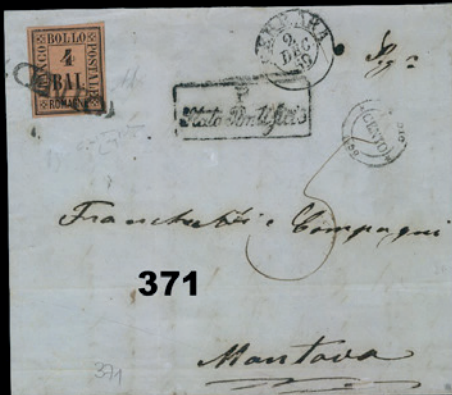 FRANCO BOLLO POSTALE
4
BAI
ROMAGNE
FERRARA
2
DEC
59
P
Stato Pontificio
CENTO
Franchetti e Compagni
371
Mantova
371